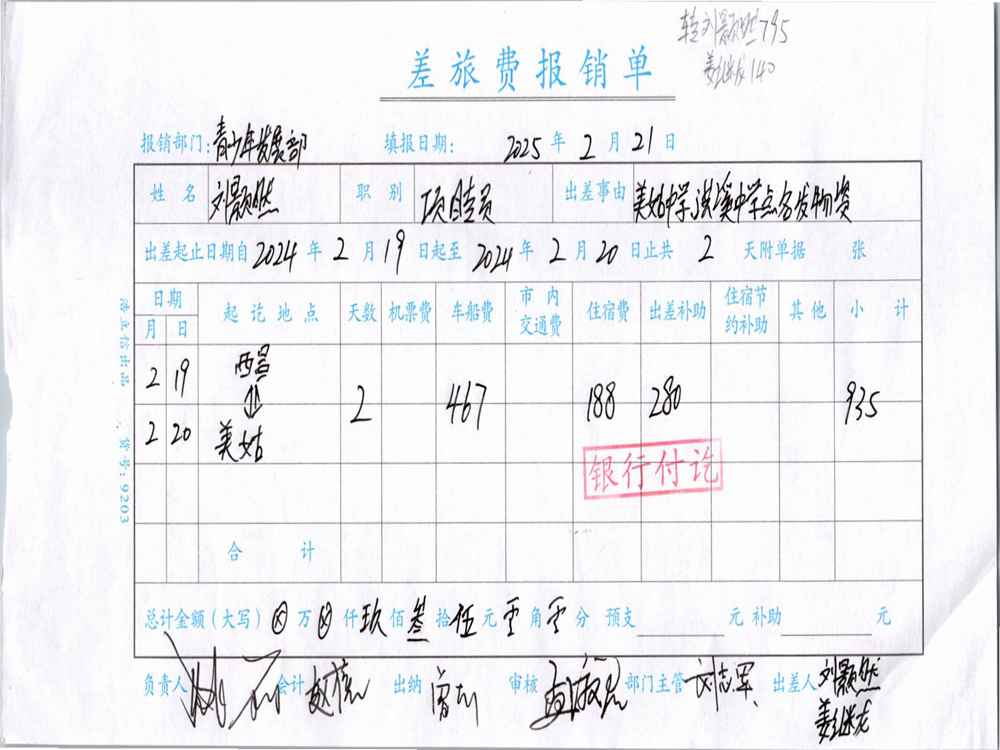 转刘颢然795
姜继龙140
差旅费报销单
报销部门：青少年发展部 填报日期：2025年2月21日
姓名 刘颢然 职别 项目专员 出差事由 美姑中学、洪溪中学点名发物资
出差起止日期自2024年2月19日起至2024年2月20日止共2天附单据 张
日期 起讫地点 天数 机票费 车船费 市内交通费 住宿费 出差补助 住宿节约补助 其他 小计
月 日
2 19 西昌
⇅ 2 467 188 280 935
2 20 美姑
银行付讫
合计
总计金额（大写）⊗万⊗仟玖佰叁拾伍元零角零分 预支 元 补助 元
负责人 会计 出纳 审核 部门主管 刘志军 出差人 刘颢然
姜继龙
浩立信出品 货号：9203